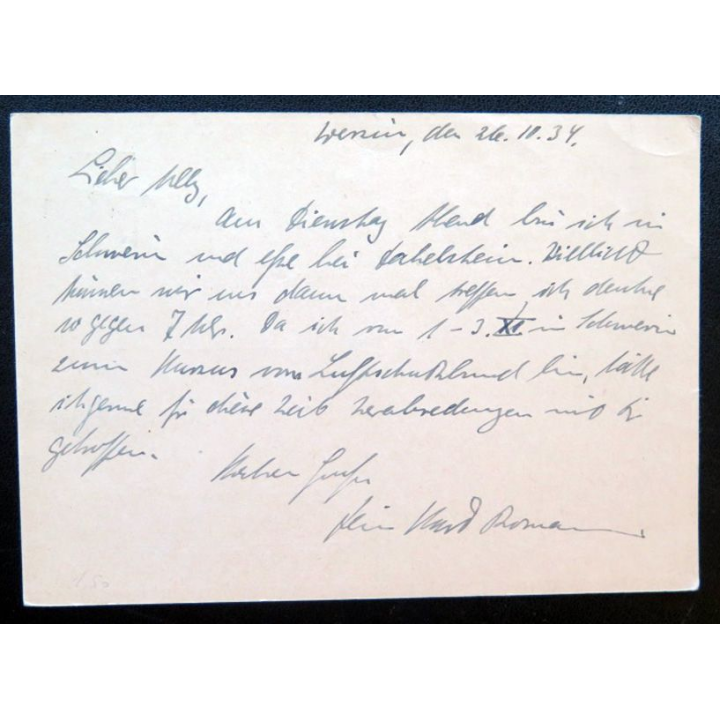 den 26.10.34.
Lieber Ully,
am Dienstag Abend bin ich in
Schwerin und esse bei Dabelstein. Vielleicht
können wir uns dann mal treffen ich denke
so gegen 7 Uhr. Da ich vom 1-3.XI in Schwerin
zum Kursus vom Luftschutzbund bin, hätte
ich gerne für diese Zeit Verabredungen mit Dir
getroffen.
Gruß
Dein Kurt Romann
1,50